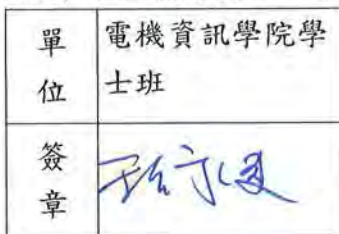 單位
電機資訊學院學
士班
簽章